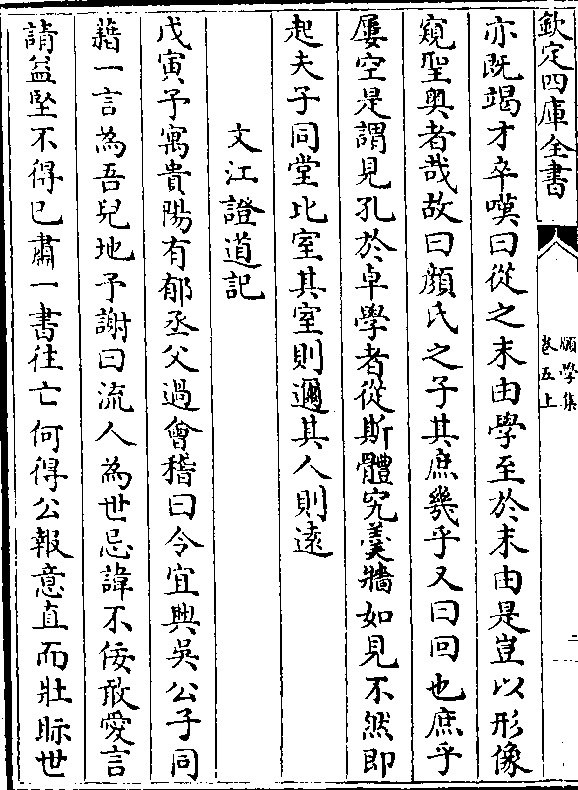 欽定四庫全書
願學集
卷五上
二
亦既竭才卒嘆曰從之末由學至於末由是豈以形像
窺聖奥者哉故曰顔氏之子其庶幾乎又曰回也庶乎
屢空是謂見孔於卓學者從斯體究羮牆如見不然即
起夫子同堂比室其室則邇其人則逺
文江證道記
戊寅予寓貴陽有郁丞父過會稽曰令宜興吳公子同
藉一言為吾兒地予謝曰流人為世忌諱不佞敢愛言
請益堅不得已肅一書往亡何得公報意直而壯眎世